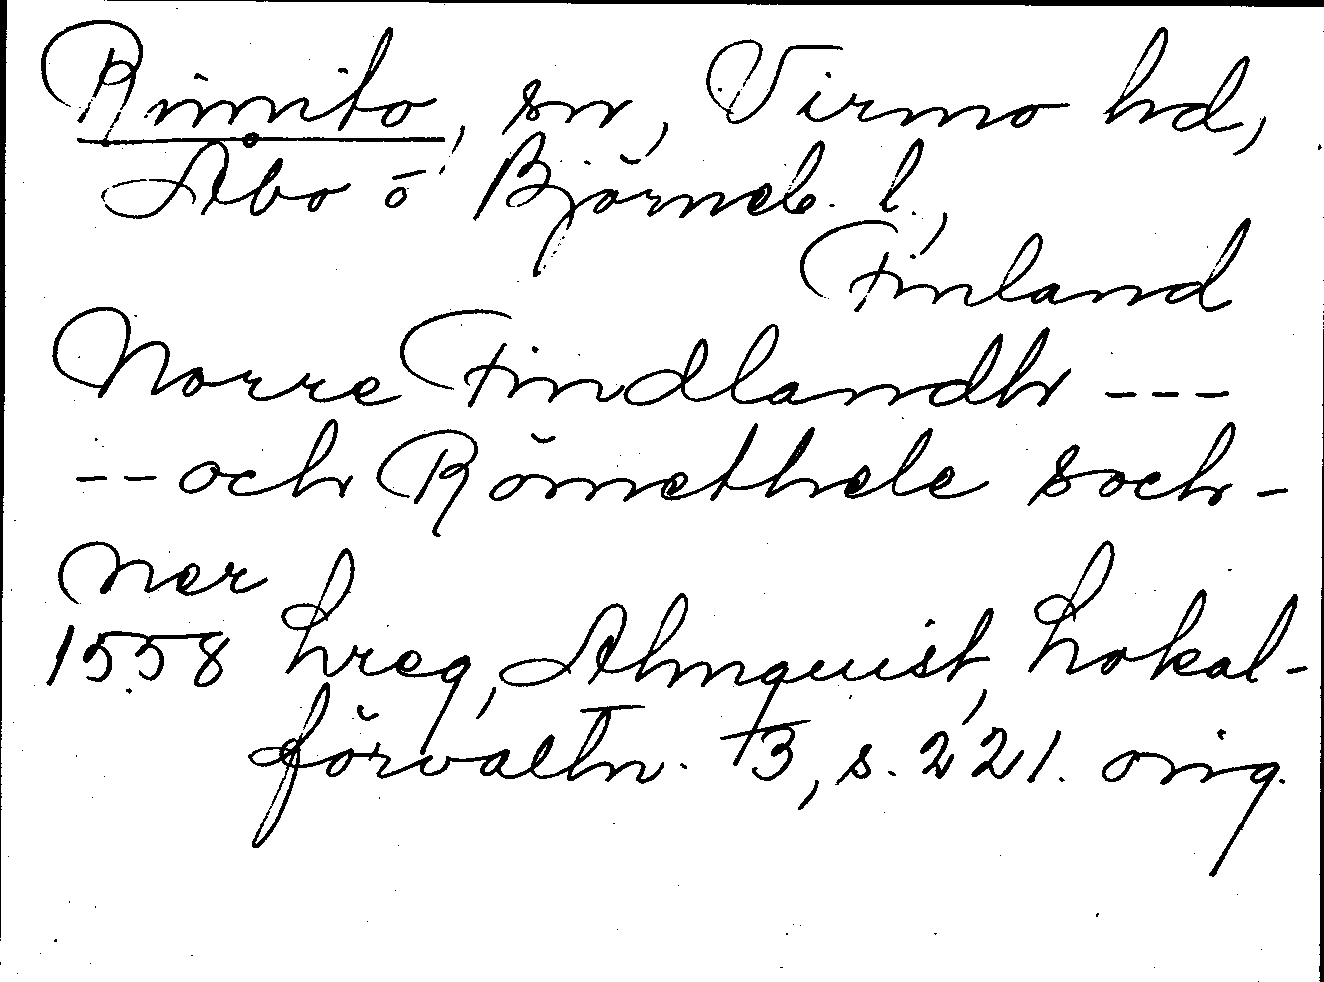 Rimito, sn, Virmo hd,
Åbo o Björneb. l.,
Finland
Norre Findlandh ---
-- och Römethele soch-
ner
1558 hreg, Almquist, Lokal-
förvaltn. 3, s. 221. orig.